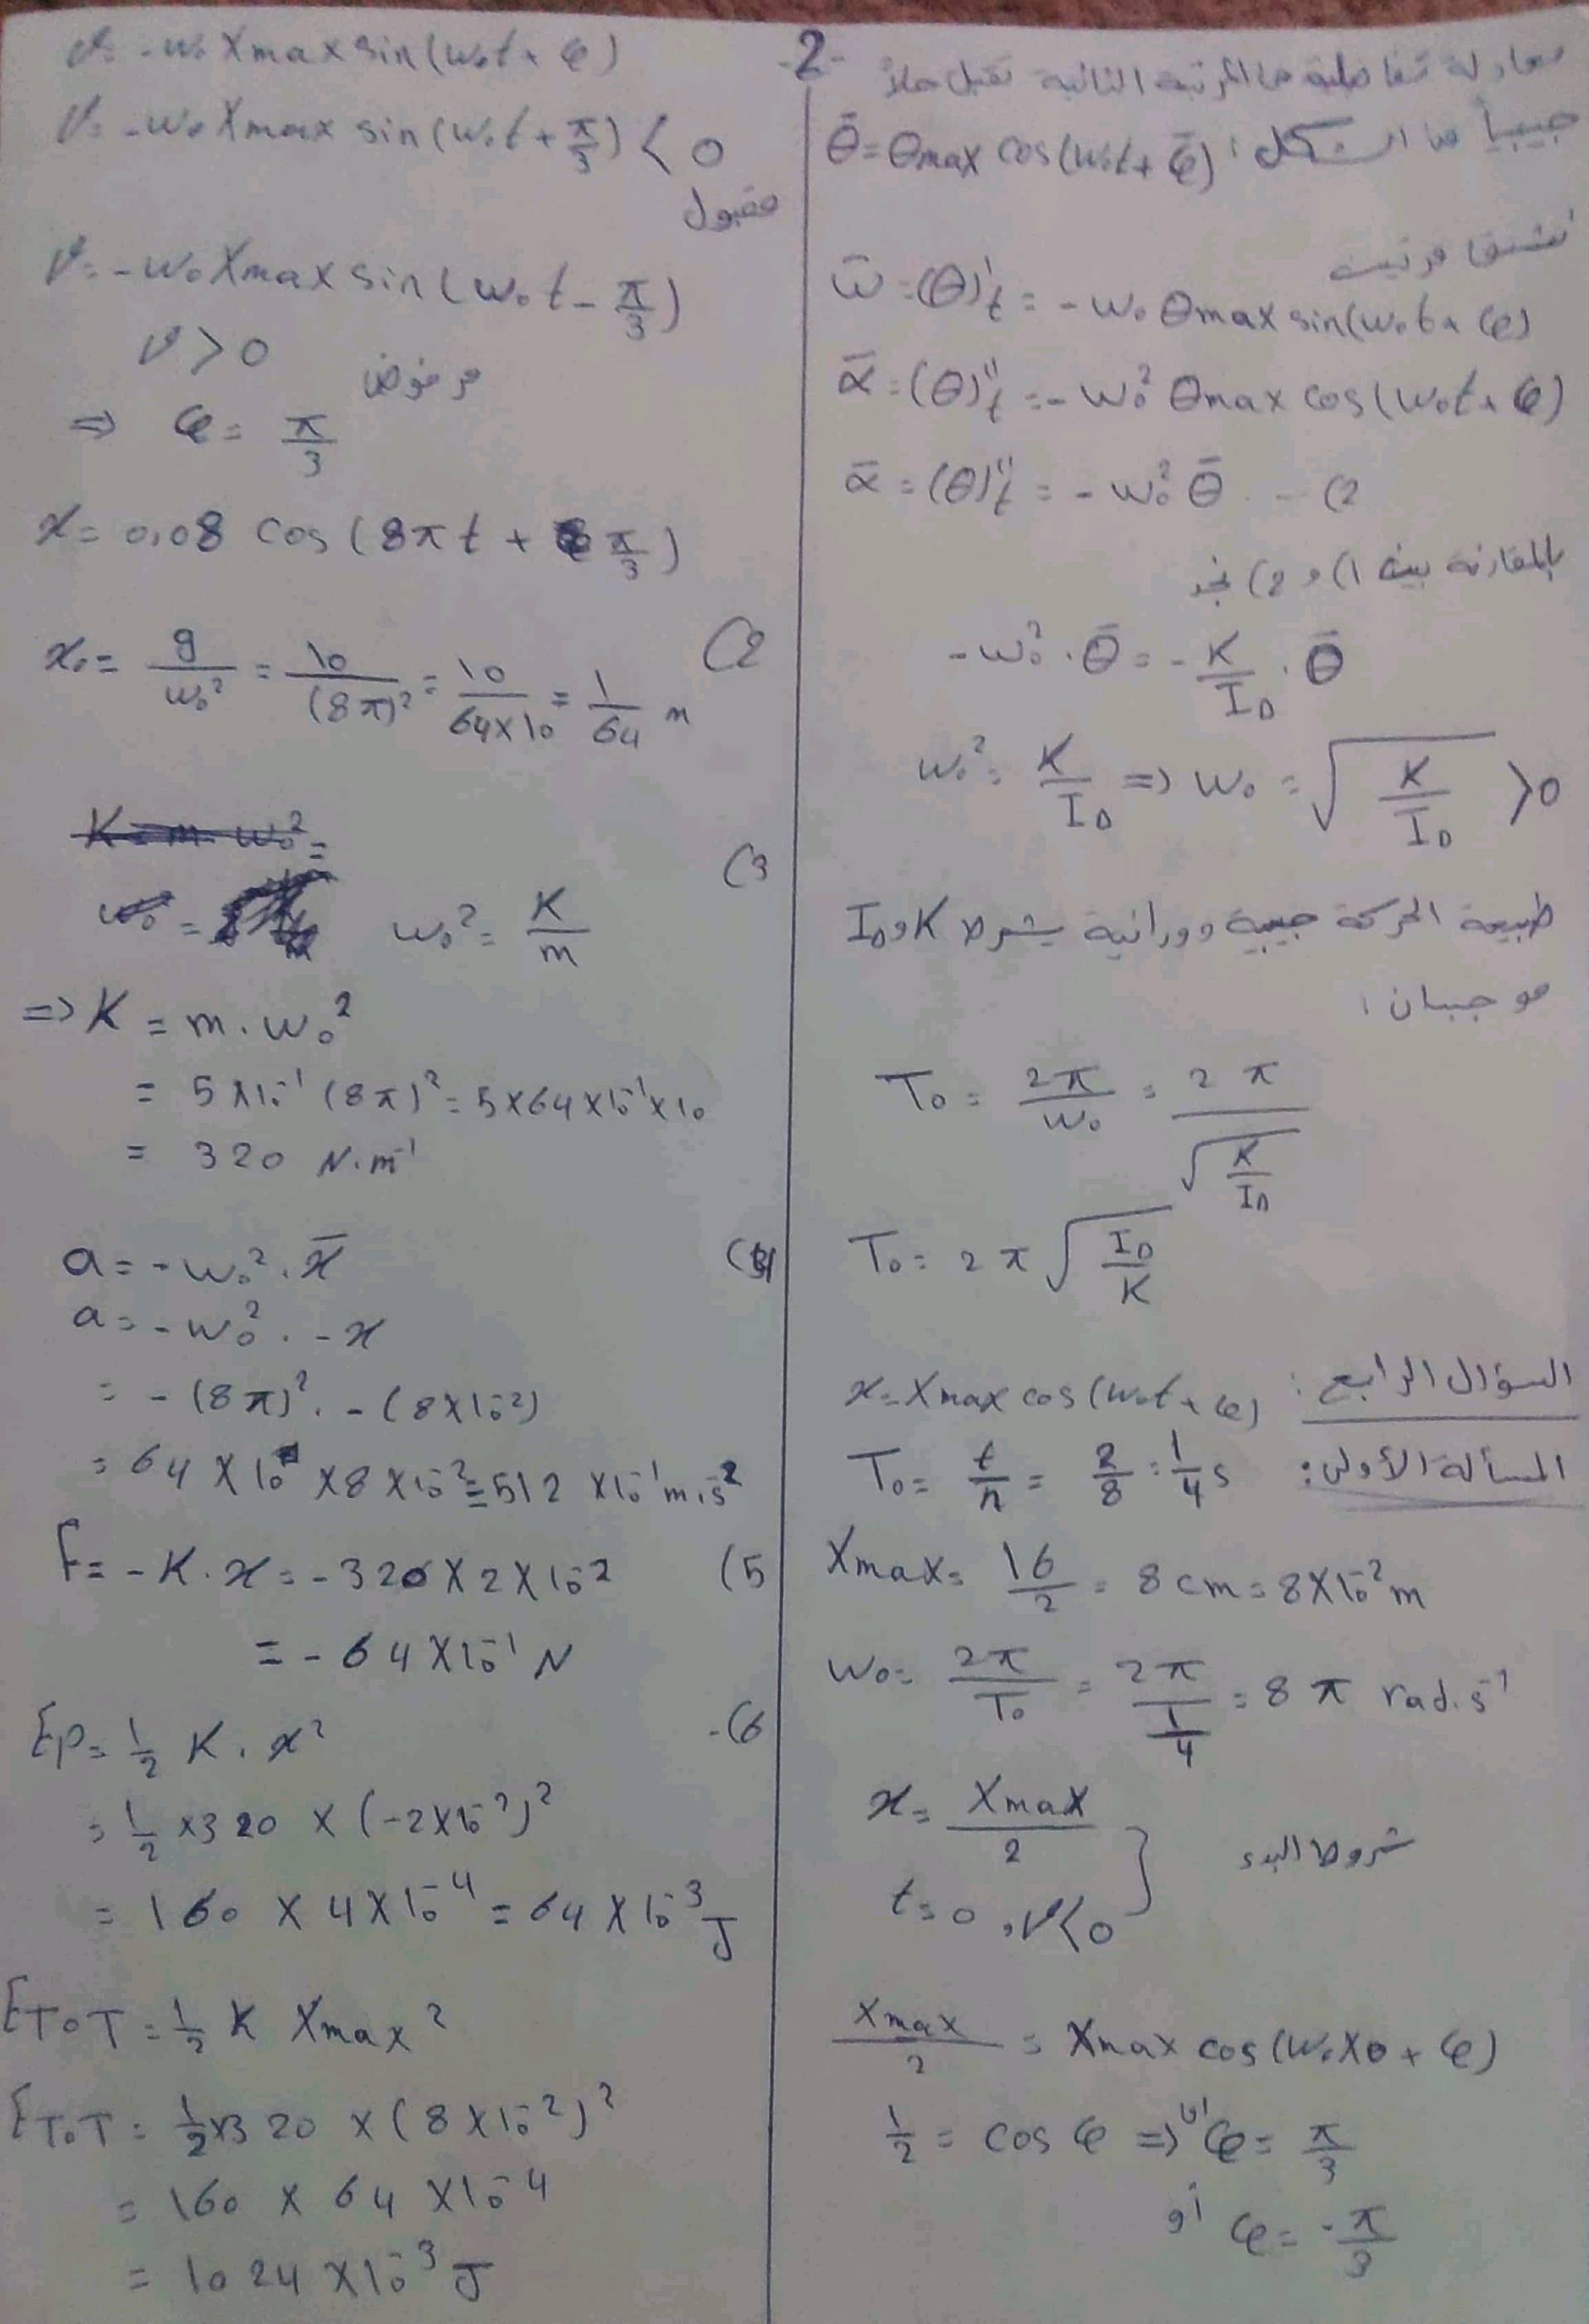 -2-
معادلة تفاضلية من المرتبة الثانية تقبل حلاً
جيبياً من الشكل: θ̄ = θmax cos(ω₀t + φ̄)
نشتق مرتين
ω̄ = (θ)'t = -ω₀ θmax sin(ω₀t + φ)
ᾱ = (θ)''t = -ω₀² θmax cos(ω₀t + φ)
ᾱ = (θ)''t = -ω₀² θ̄ -- (2
بالمقارنة بين 1) و 2) نجد
-ω₀² . θ̄ = - K/I_Δ . θ̄
ω₀² = K/I_Δ => ω₀ = √(K/I_Δ) > 0
طبيعة الحركة جيبية دورانية بشرط K و I_Δ
موجبان:
T₀ = 2π/ω₀ = 2π/√(K/I_Δ)
T₀ = 2π √(I_Δ/K)
السؤال الرابع: x = Xmax cos(ω₀t + φ)
المسألة الأولى: T₀ = t/n = 2/8 = 1/4 s
Xmax = 16/2 = 8 cm = 8×10⁻² m
ω₀ = 2π/T₀ = 2π/(1/4) = 8π rad.s⁻¹
x = Xmax/2
شروط البدء
t = 0 , v < 0
Xmax/2 = Xmax cos(ω₀×0 + φ)
1/2 = cos φ => إما φ = π/3
أو φ = -π/3
v = -ω₀ Xmax sin(ω₀t + φ)
v = -ω₀ Xmax sin(ω₀t + π/3) < 0
مقبول
v = -ω₀ Xmax sin(ω₀t - π/3)
v > 0 مرفوض
=> φ = π/3
x = 0,08 cos(8πt + π/3)
x₀ = g/ω₀² = 10/(8π)² = 10/(64×10) = 1/64 m (2
K = m ω₀² =
(3
ω₀ = ω₀² = K/m
=> K = m . ω₀²
= 5×10⁻¹ (8π)² = 5×64×10⁻¹×10
= 320 N.m⁻¹
a = -ω₀² . x̄ (4
a = -ω₀² . -x
= -(8π)² . -(8×10⁻²)
= 64×10×8×10⁻² = 512×10⁻¹ m.s⁻²
F = -K . x = -320×2×10⁻² (5
= -64×10⁻¹ N
Ep = 1/2 K . x² -(6
= 1/2 ×320 × (-2×10⁻²)²
= 160 × 4×10⁻⁴ = 64×10⁻³ J
ETOT = 1/2 K Xmax²
ETOT = 1/2 ×320 × (8×10⁻²)²
= 160 × 64 ×10⁻⁴
= 1024×10⁻³ J